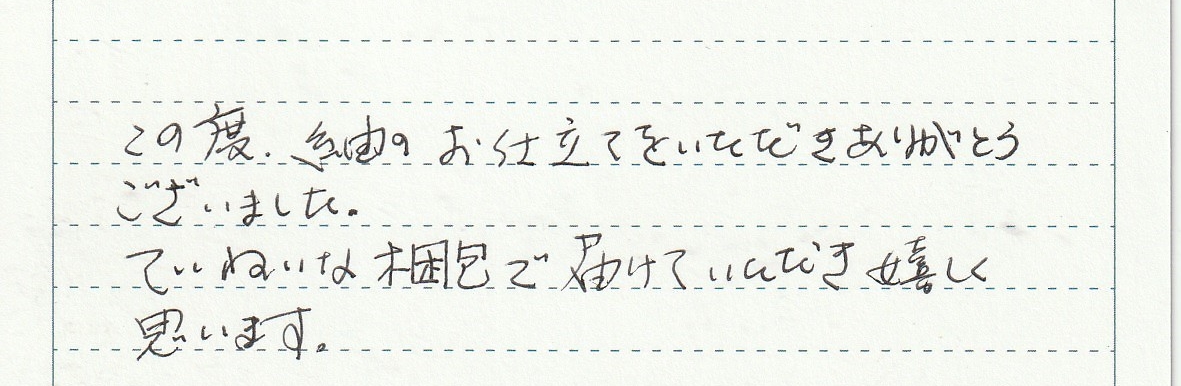 この度、紬のお仕立てをいただきありがとう
ございました。
ていねいな梱包で届けていただき嬉しく
思います。